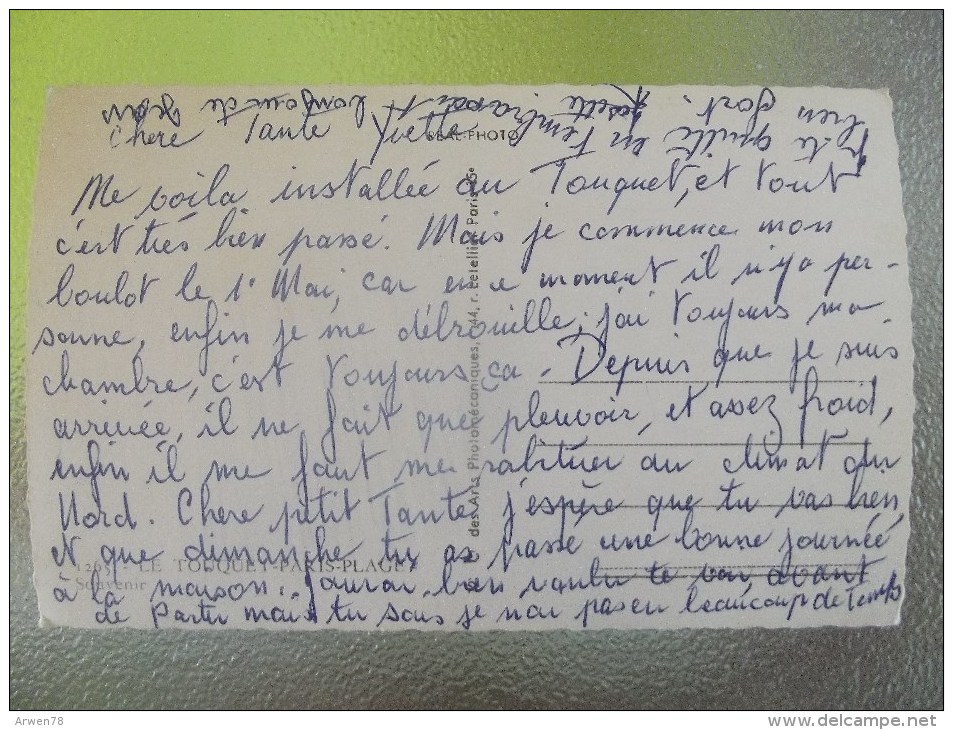 Chere Tante Yvette
REAL-PHOTO
Me voila installée au Touquet, et tout
c'est très bien passé. Mais je commence mon
boulot le 1° Mai, car en ce moment il n'y a per-
sonne, enfin je me débrouille, j'ai toujours ma
chambre, c'est toujours ça. Depuis que je suis
arrivée, il ne fait que pleuvoir, et assez froid,
enfin il me faut me rabituer au climat du
Nord. Chere petit Tante j'espère que tu vas bien,
et que dimanche tu as passe une bonne journée
à la maison. J'aurai bien voulu te voir avant
de Partir mais tu sais je n'ai pas eu beaucoup de Temps
Je te quitte en t'embrassant
bien fort.
Josette
bonjour de
Jean
des Arts Photomécaniques, 44, r. Letellier, Paris-15e
LE TOUQUET-PARIS-PLAGE
Souvenir
Arwen78
delcampe.net